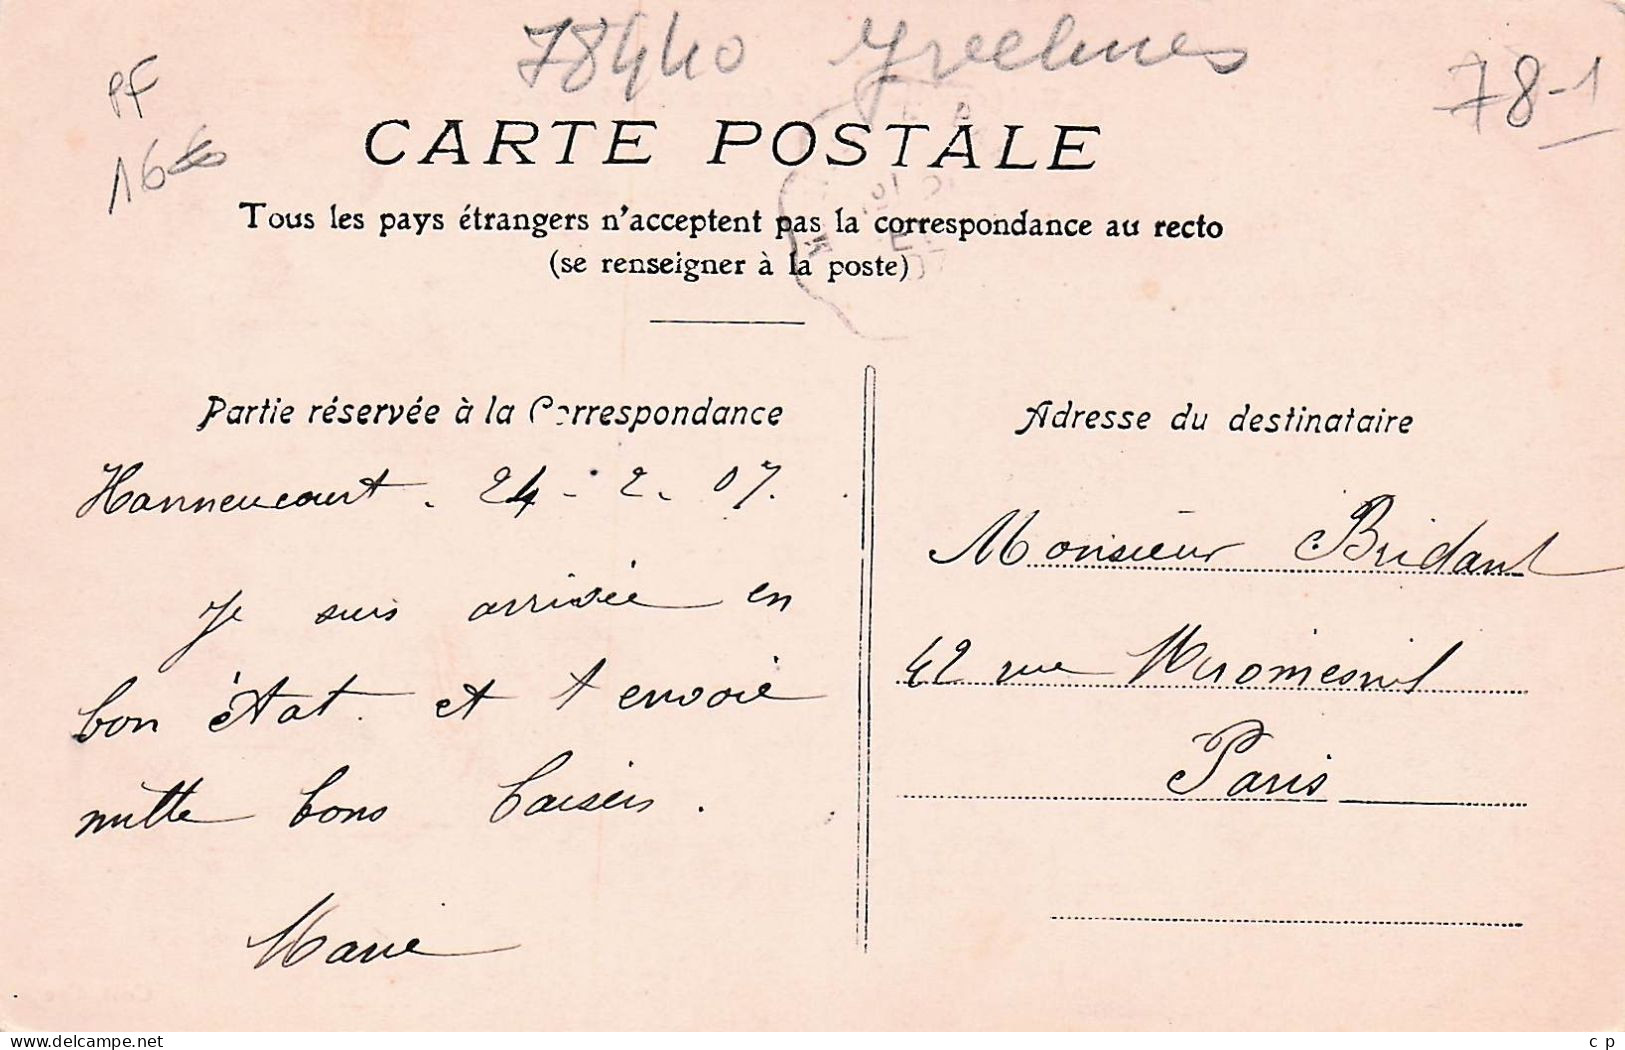 78440 Yvelines
78-1
PF
16
CARTE POSTALE
Tous les pays étrangers n'acceptent pas la correspondance au recto
(se renseigner à la poste)
Partie réservée à la Correspondance
Hanneucourt. 24-2.07.
Je suis arrivée en
bon état. et t envoie
mille bons baisers.
Marie
Adresse du destinataire
Monsieur Bridant
42 rue Miromesnil
Paris
www.delcampe.net
c p